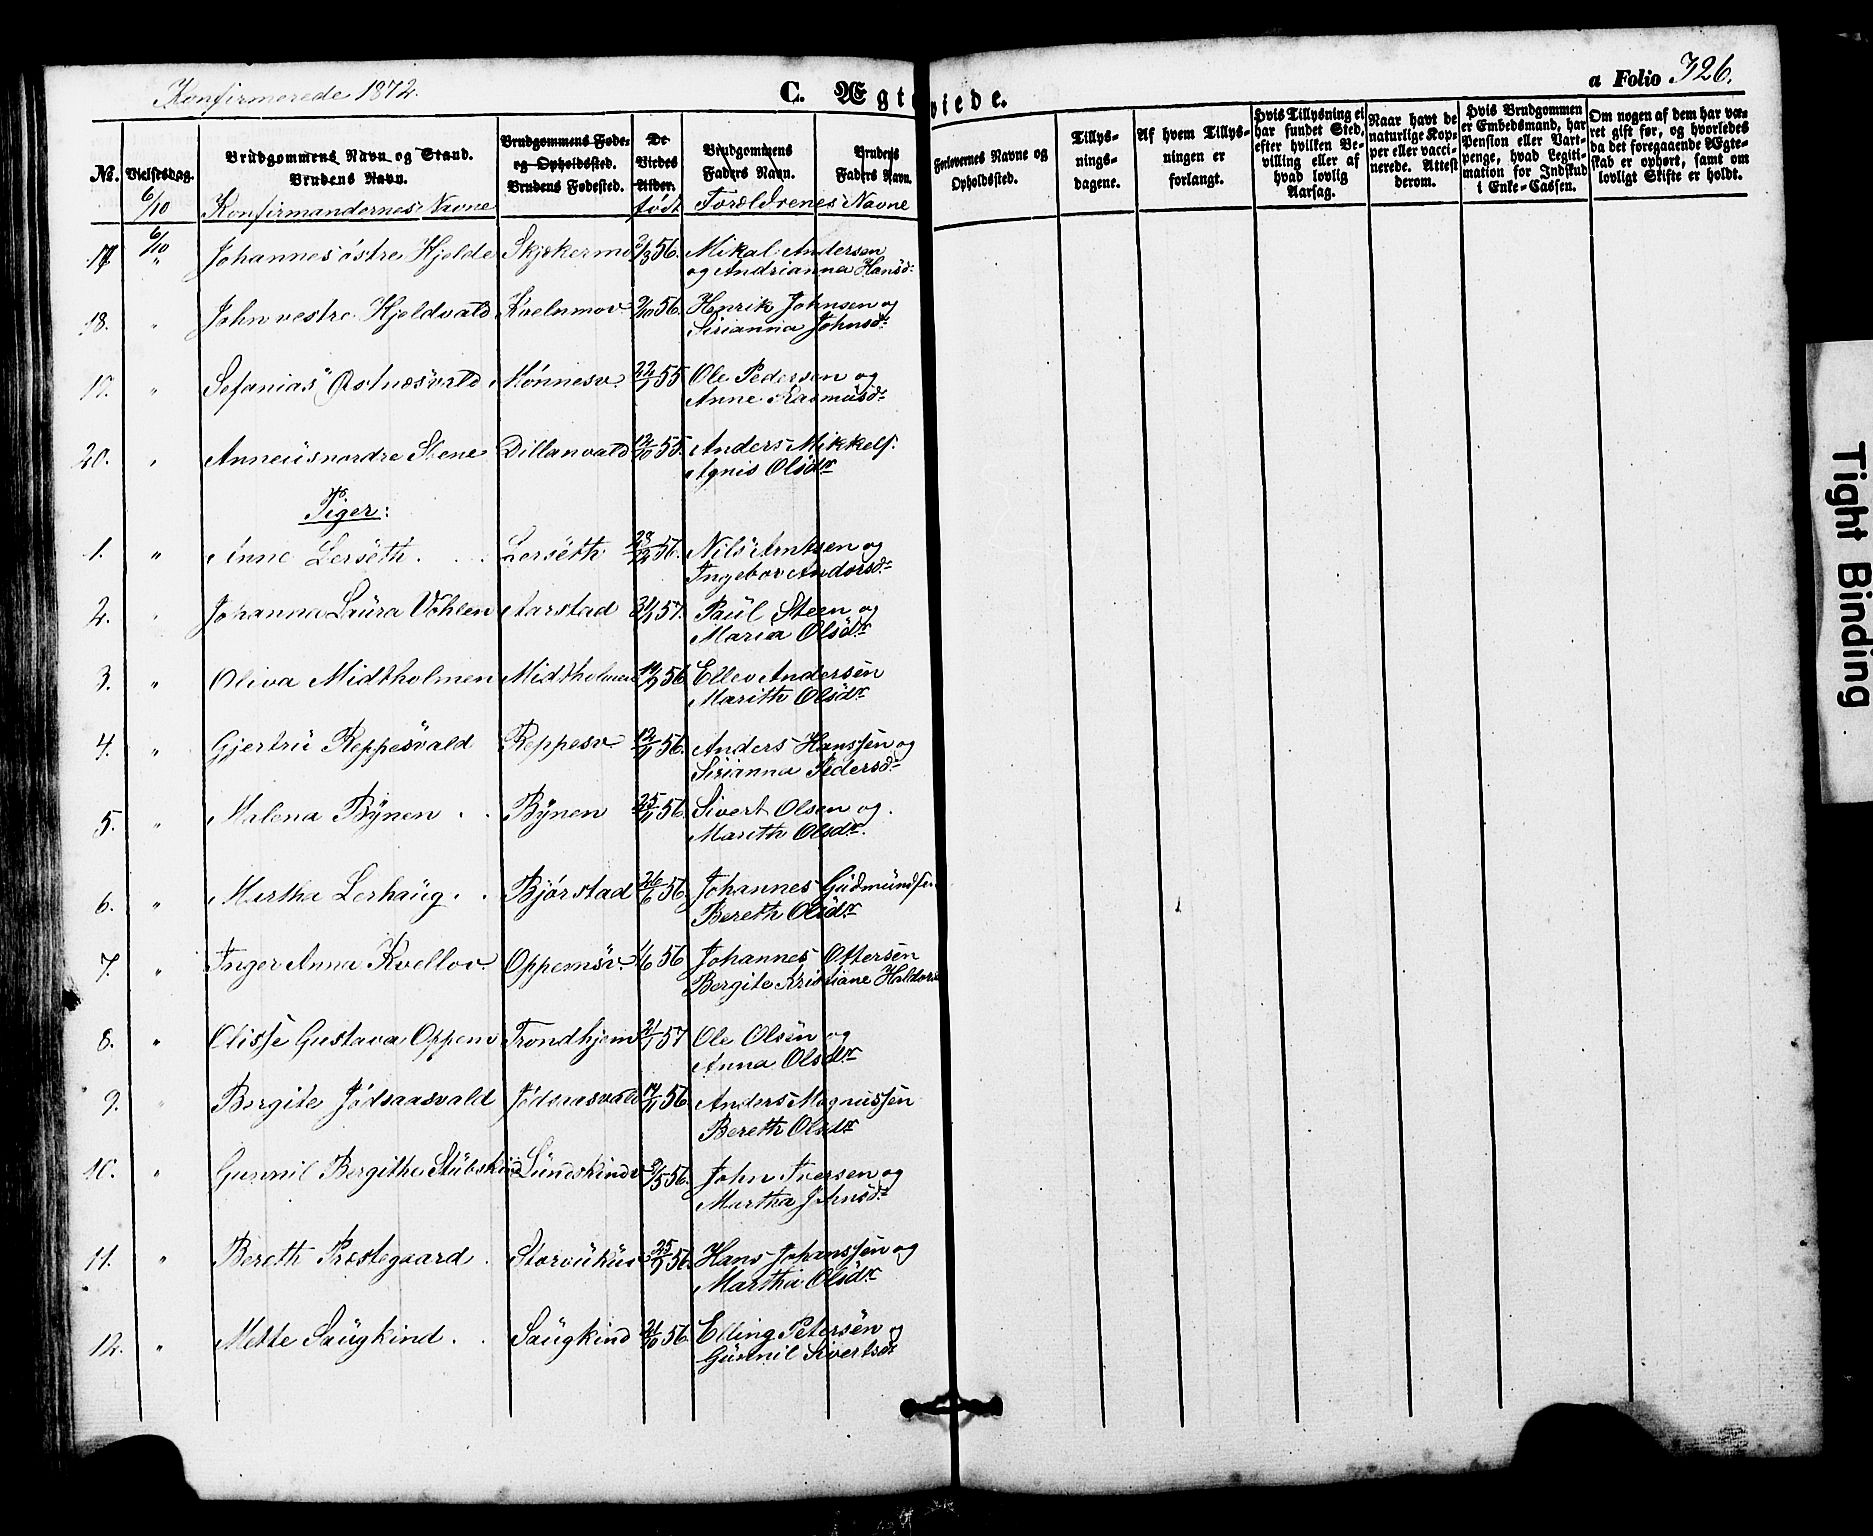 Konfirmerede 1872.
C. Ægteviede.
a Folio 326.
No.
Vielsesdag.
Brudgommens Navn og Stand.
Brudens Navn.
Brudgommens Føde-
og Opholdssted.
Brudens Fødested.
De
Viedes
Alder.
født
Brudgommens
Faders Navn.
Brudens
Faders Navn.
Forlovernes Navne og
Opholdssted.
Tillys-
nings-
dagene.
Af hvem Tillys-
ningen er
forlangt.
Hvis Tillysning ei
har fundet Sted,
efter hvilken Be-
villing eller af
hvad lovlig
Aarsag.
Naar havt de
naturlige Kop-
per eller vacci-
nerede. Attest
derom.
Hvis Brudgommen
er Embedsmand, har
Pension eller Vart-
penge, hvad Legiti-
mation for Indskud
i Enke-Cassen.
Om nogen af dem har væ-
ret gift før, og hvorledes
da det foregaaende Ægte-
skab er ophørt, samt om
lovligt Skifte er holdt.
6/10 Konfirmandernes Navne Forældrenes Navne
17. 6/10 Johannes østre Hjelde 56. Mikal Andersen
og Andrianna Hansd:
18. " John vestre Hjeldvald 56. Henrik Johnsen og
Sirianna Johnsd:
" 22/7 55 Ole Pedersen og
Anne Rasmusd:
20. " Anneus nordre Stene Dillanvald 12/10 55. Anders Mikkels.
Agnis Olsdr
Piger:
1. " Anne Lerseth. Lerseth 56. Nils Arntsen og
Ingebor Andersd:
2. " Johanna Laura Vohlen Aarstad 57. Paul Steen og
Maria Olsdr
3. " Oliva Midtholmen Midtholmen 56 Ellev Andersen
Marith Olsdr
4. " Gjertru Reppesvald Reppesv. 56. Anders Hanssen og
Sirianna Pedersd:
5. " Malena Bynen Bynen 56. Sivert Olsen og
Marith Olsdr.
6. " Martha Lerhaug. Bjørstad 26/6 56. Johannes Gudmundsen
Bereth Olsdr
7. " Inger Anna Kvellov. Oppemsv. 1/6 56 Johannes Oftersen
Bergite Kristiane Haldors
8. " Elisse Gustava Oppem Trondhjem 57 Ole Olsen og
Anna Olsdr
9. " Bergite Jødsaasvald Jødsaasvald 56. Anders Magnussen
Bereth Olsdr
10. " Gunnil Bergithe 56. John Iversen og
Martha Johnsd:
11. " Bereth Præstegaard. 56. Hans Johanssen og
Martha Olsdr
12. " Mette Saugkind. Saugkind 56. Elling Petersen og
Gunnil Sivertsdr
Tight Binding